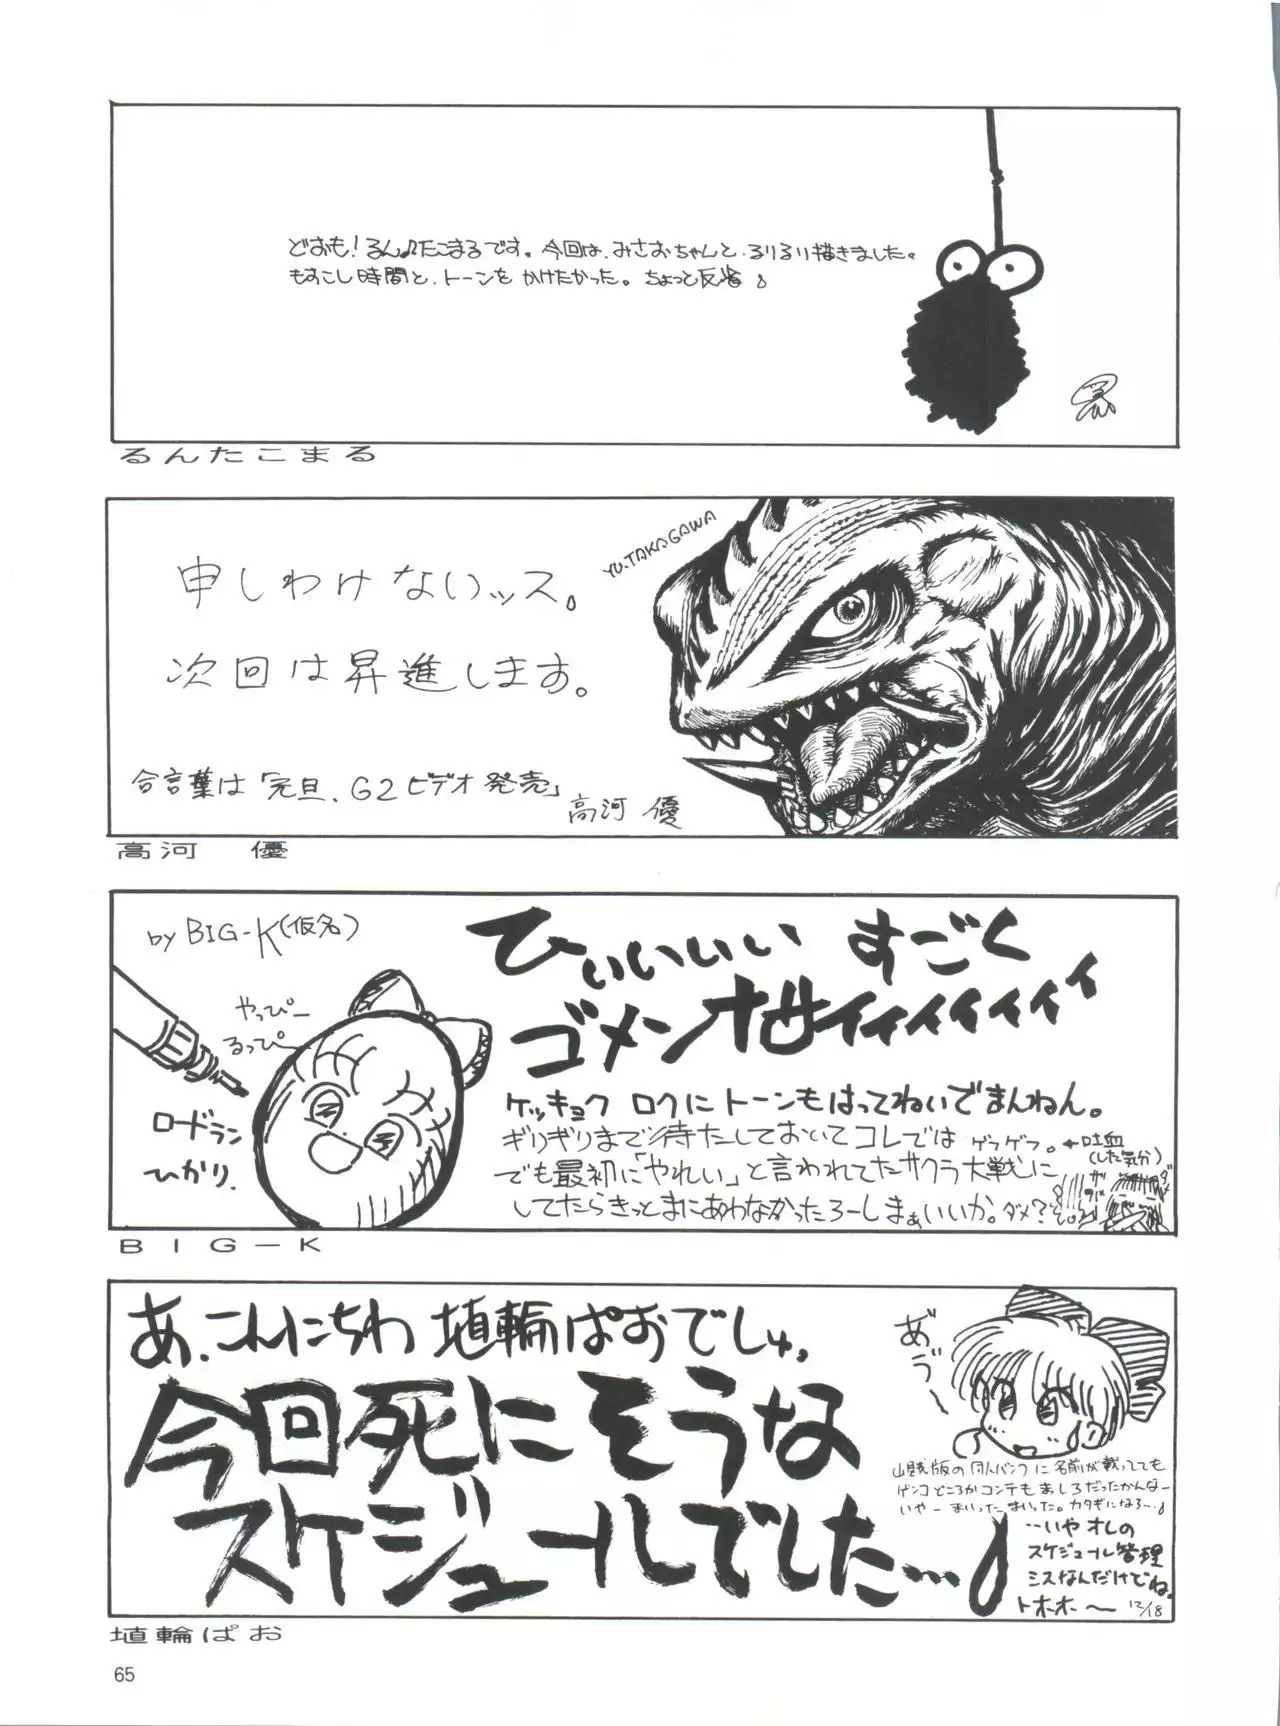 どおも!るん♪たこまるです。今回は、みさおちゃんと、るりるり描きました。
もすこし時間と、トーンをかけたかった。ちょっと反省♪
るんたこまる
YU.TAKAGAWA
申しわけないッス。
次回は昇進します。
合言葉は「元旦、G2ビデオ発売」
高河 優
高河 優
by BIG-K(仮名)
ひぃぃぃぃぃ すごく
ゴメンナサイィィィィィィ
やっぴー
るっぴー
ロードラン
ひかり.
ケッキョク ロクにトーンもはってねぃでまんねん。
ギリギリまで待たしておいてコレでは ゲフゲフ。←吐血
(した気分)
でも最初に「やれぃ」と言われてたサクラ大戦に
してたらきっとまにあわなかったろーしまぁいいか。ダメ?
BIG-K
あ、こんにちわ 埴輪ぱおでしゅ,
今回死にそうな
スケジュールでした…
あづー
山賊版の同人バンクに名前が載ってても
ゲンコどころかコンテもましろだったかんなー
いやーまいったまいった。カタギになろ…♪
…いや オレの
スケジュール管理
ミスなんだけでね。
トホホ〜 12/18
埴輪ぱお
65